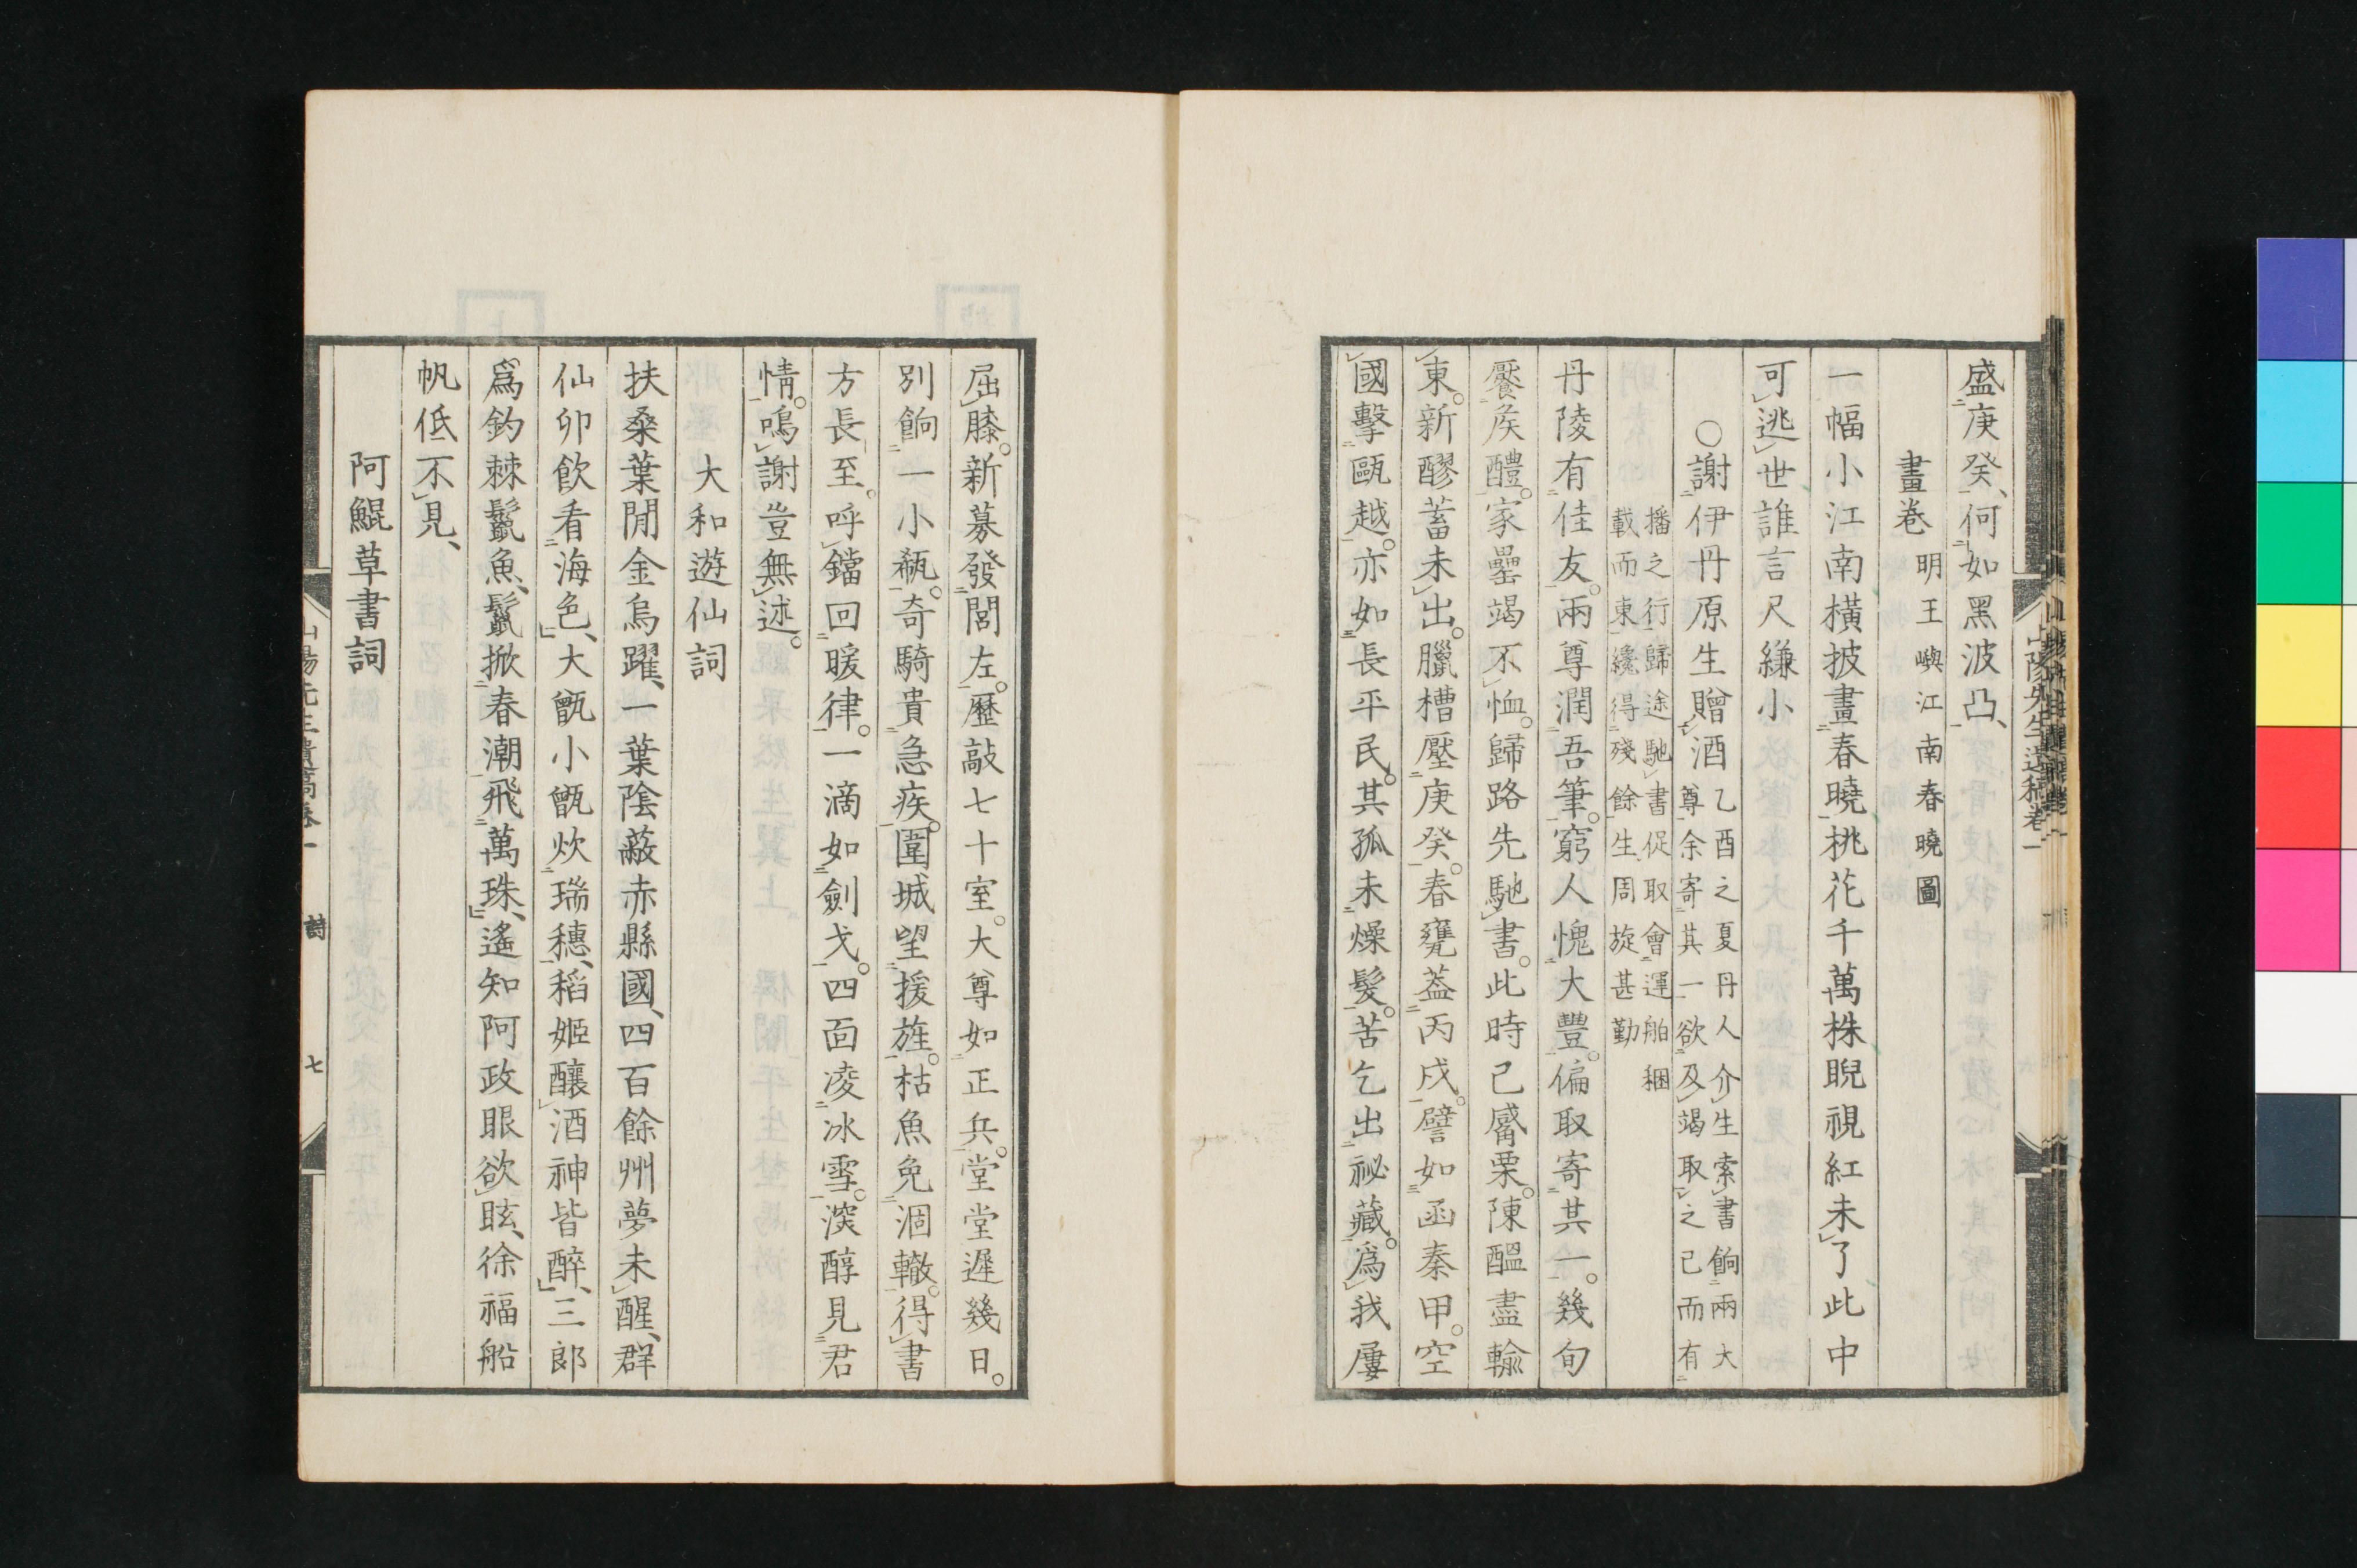 盛庚癸、何如黑波凸、
畫卷 明王嶼江南春曉圖
一幅小江南橫披畫春曉桃花千萬株睨視紅未了此中
可逃世誰言尺縑小
○謝伊丹原生贈酒 乙酉之夏丹人介生索書餉兩大
尊余寄其一欲及竭取之已而有
播之行歸途馳書促取會運舶稇
載而東纔得殘餘生周旋甚勤
丹陵有佳友。兩尊潤吾筆。窮人愧大豐。偏取寄其一。幾旬
饜矦醴。家罍竭不恤。歸路先馳書。此時已觱栗。陳醞盡輸
東。新醪蓄未出。臘槽壓庚癸。春甕蓋丙戌。譬如函秦甲。空
國擊甌越。亦如長平民。其孤未燥髮。苦乞出祕藏。爲我屢
屈膝。新募發閭左。歷敲七十室。大尊如正兵。堂堂遲幾日。
別餉一小瓻。奇騎貴急疾。圍城望援旌。枯魚免涸轍。得書
方長至。呼鐺回暖律。一滴如劍戈。四面凌冰雪。深醇見君
情。鳴謝豈無述。
大和遊仙詞
扶桑葉閒金烏躍、一葉陰蔽赤縣國、四百餘州夢未醒、群
仙卯飲看海色、大甑小甑炊瑞穗、稻姬釀酒神皆醉、三郎
爲釣棘鬣魚、鬣掀春潮飛萬珠、遙知阿政眼欲眩、徐福船
帆低不見、
阿鯤草書詞
山陽先生遺稿卷一
詩
七